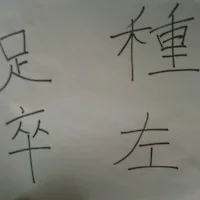 足種
卒左